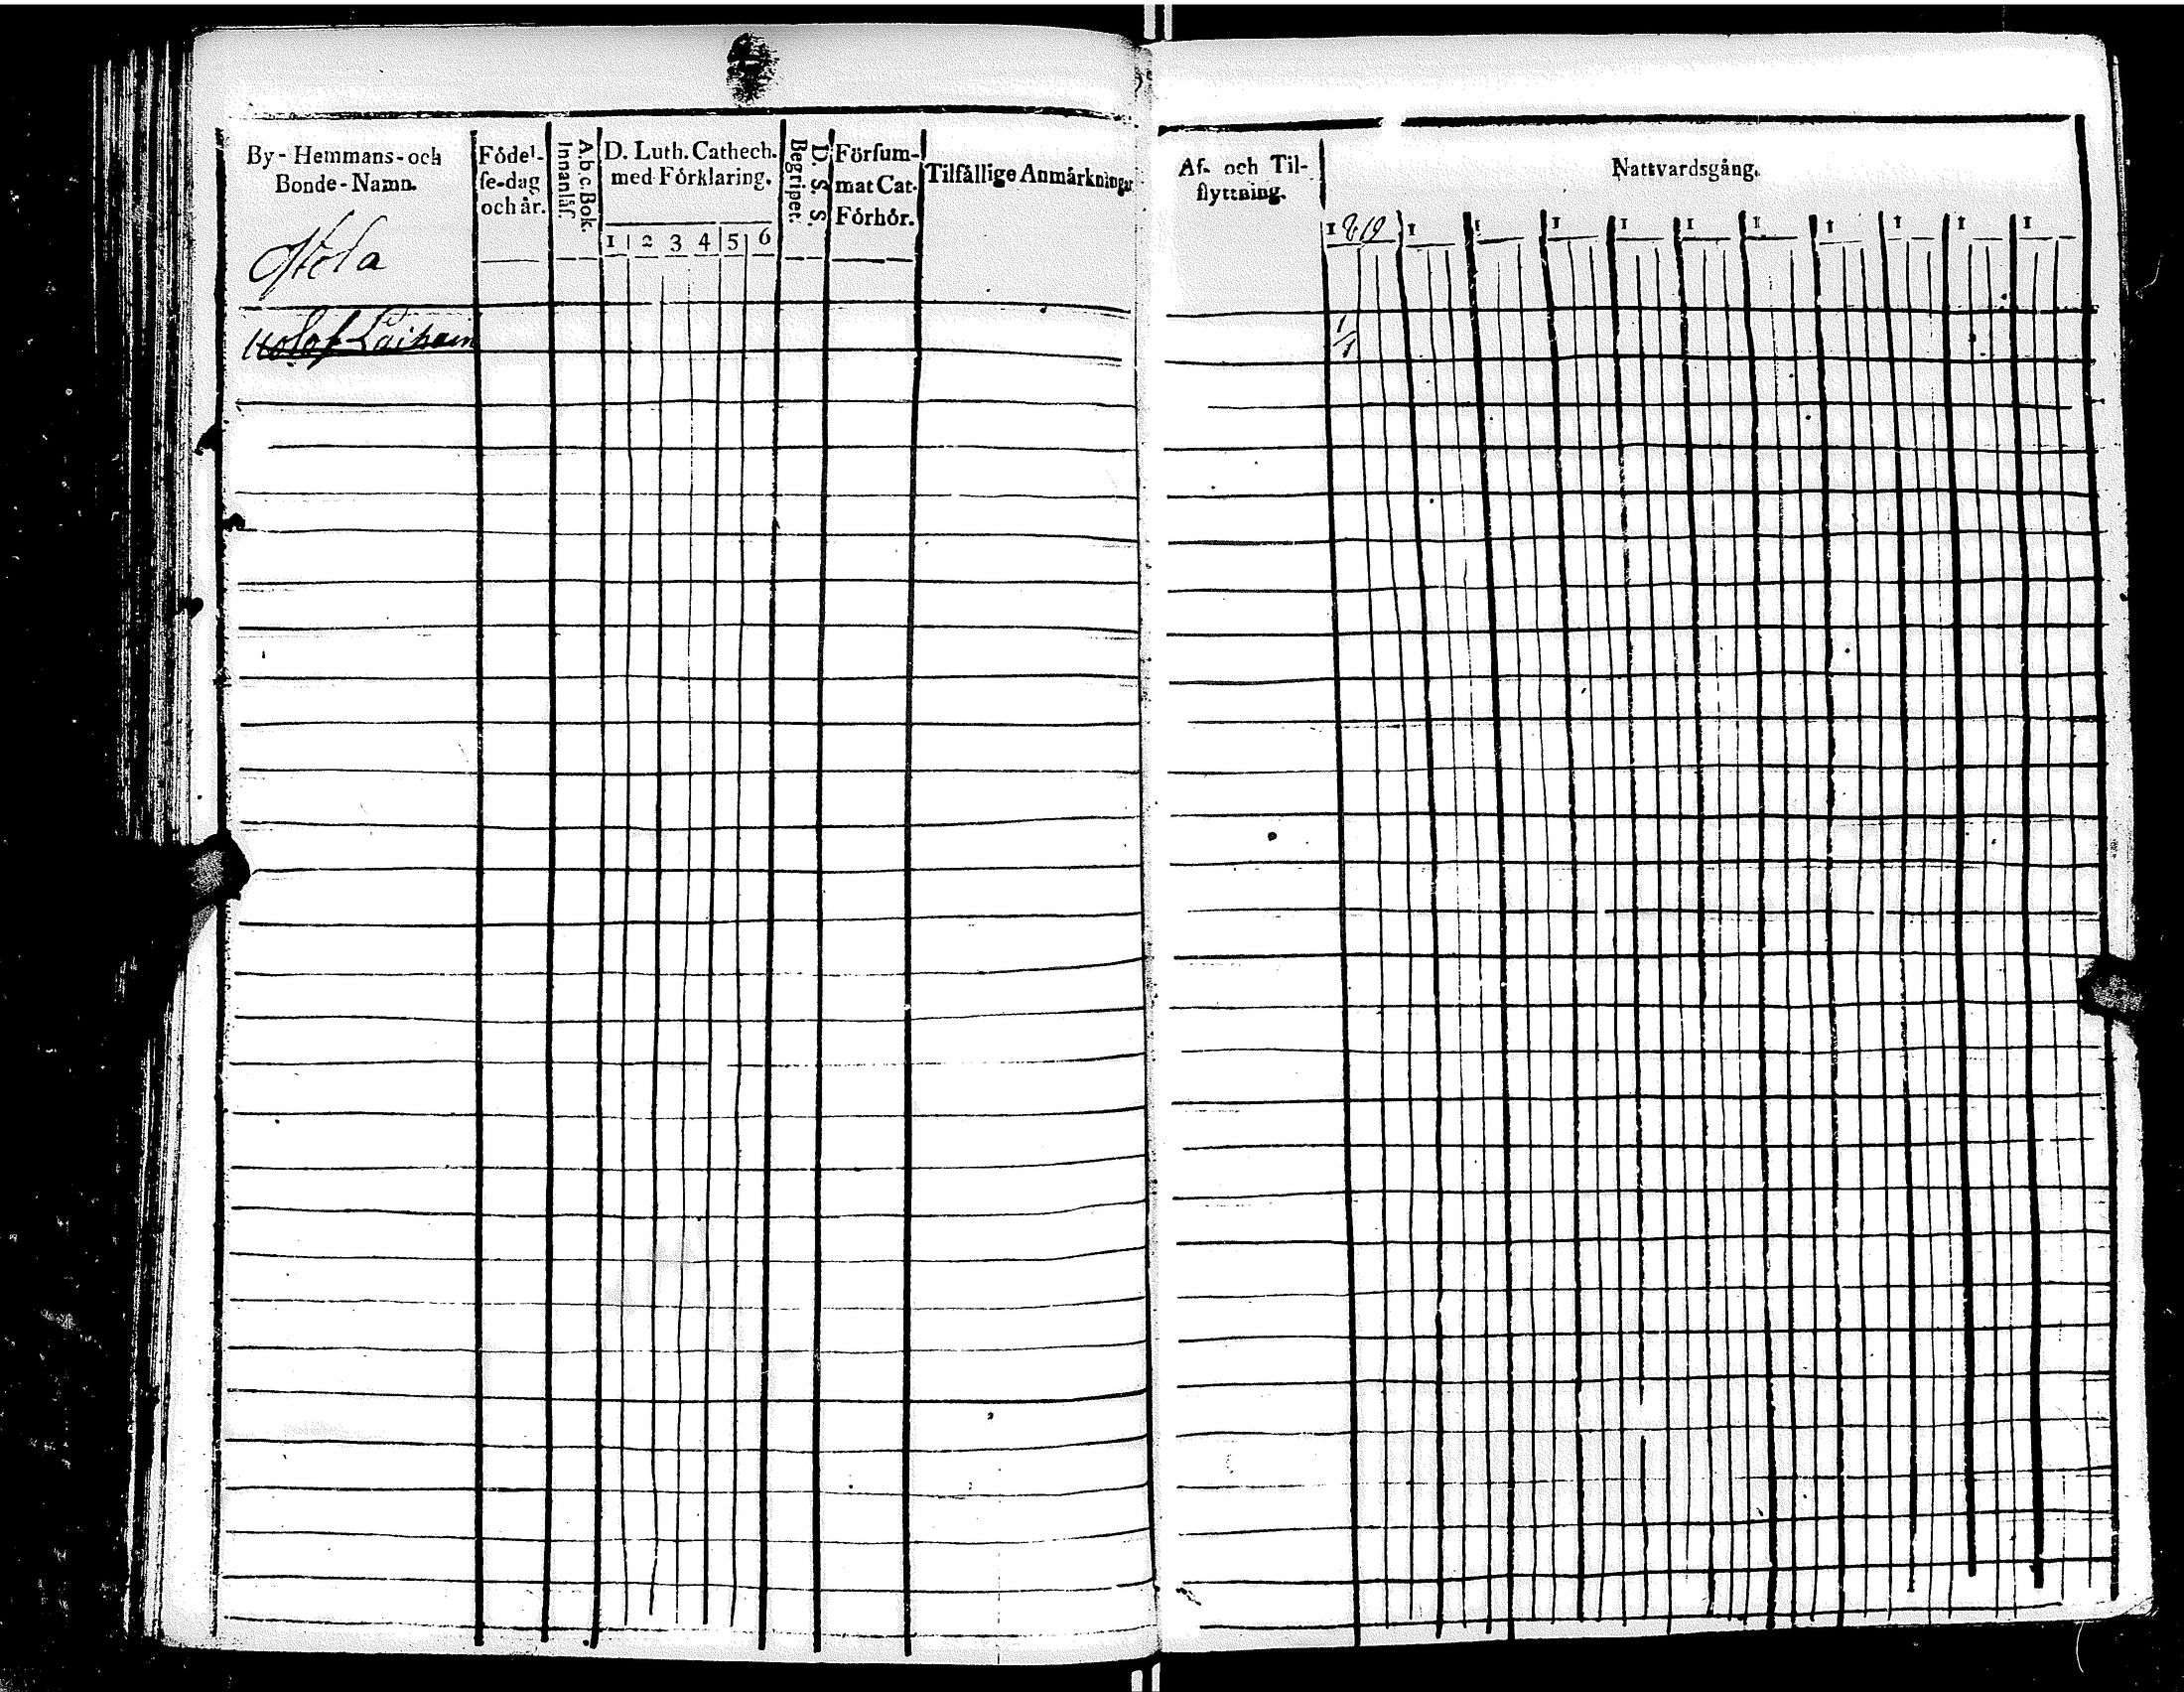 By- Hemmans- och
Bonde-Namn.
Födel-
se-dag
och år.
A.b.c.Bok.
Innanläs.
D. Luth. Cathech.
med Förklaring.
1 2 3 4 5 6
D. S. S.
Begripet.
Försum-
mat Cat.
Förhör.
Tilfällige Anmärkningar
Olof
Af- och Til-
flyttning.
Nattvardsgång.
1819 1 1 1 1 1 1 1 1 1 1
1/1